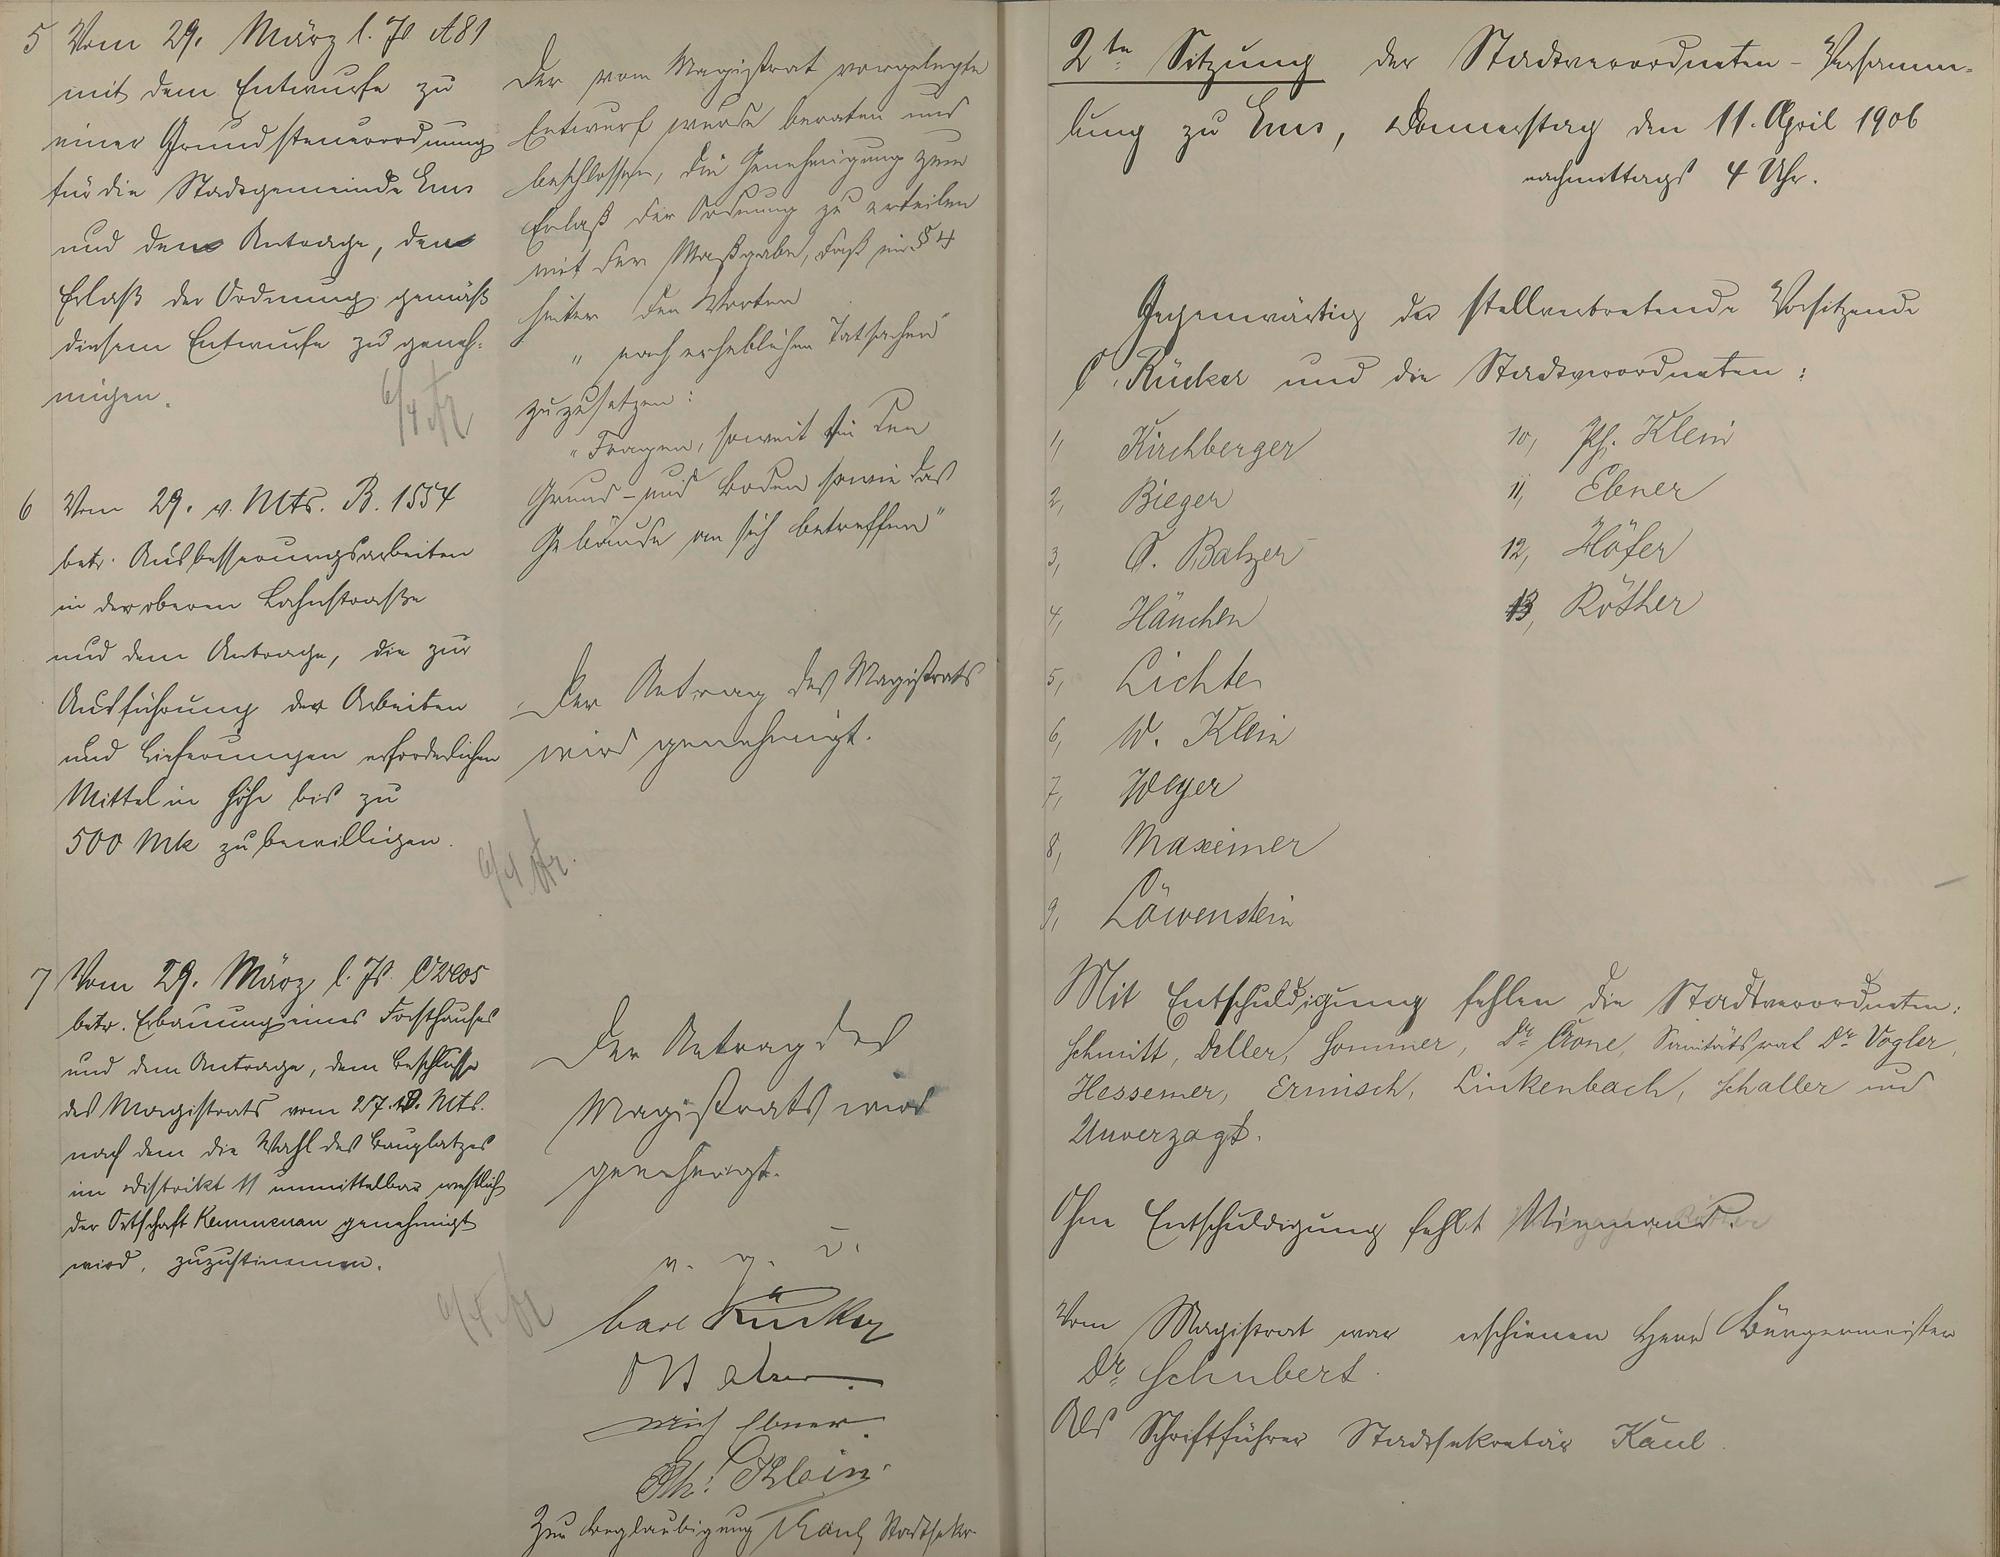 5 Vom 29. März l. Js A 81
mit dem Entwurfe zu
einer Grundsteuerordnung
für die Stadtgemeinde Ems
und dem Antrage, den
Erlaß der Ordnung gemäß
diesem Entwurfe zu geneh-
migen.
Der vom Magistrat vorgelegte
Entwurf wurde beraten und
beschlossen, die Genehmigung zum
Erlaß der Ordnung zu erteilen
mit der Maßgabe, daß im § 4
hinter den Worten
"nach erheblichen Tatsachen"
zuzusetzen:
"Fragen, soweit sie den
Grund- und Boden sowie das
Gebäude an sich betreffen"
6 Vom 29. v. Mts. B. 1554
betr. Ausbesserungsarbeiten
in der oberen Lahnstraße
und dem Antrage, die zur
Ausführung der Arbeiten
und Lieferungen erforderlichen
Mittel in Höhe bis zu
500 Mk zu bewilligen.
Der Antrag des Magistrats
wird genehmigt.
7 Vom 29. März l. Js.
betr. Erbauung eines Forsthauses
und dem Antrage, dem Beschlusse
des Magistrats vom 27. v. Mts.
nach dem die Wahl des Bauplatzes
im Distrikt 11 unmittelbar westlich
der Ortschaft Kemmenau genehmigt
wird, zuzustimmen.
Der Antrag des
Magistrats wird
genehmigt.
v. g. u.
Carl Rücker
O Balzer
Ebner
Ph. Klein
Zur Beglaubigung Kaul Stadtsekr.
2te Sitzung der Stadtverordneten-Versamm-
lung zu Ems, Donnerstag den 11. April 1906
nachmittags 4 Uhr.
Gegenwärtig der stellvertretende Vorsitzende
C. Rücker und die Stadtverordneten:
1, Kirchberger
2, Bieger
3, O. Balzer
4, Hänchen
5, Lichte
6, W. Klein
7, Weyer
8, Maxeiner
9, Löwenstein
10, Ph. Klein
11, Ebner
12, Höfer
13, Röther
Mit Entschuldigung fehlen die Stadtverordneten:
Schmitt, Deller, Sommer, Dr. Crone, Sanitätsrat Dr. Vogler,
Hessemer, Ermisch, Linkenbach, Schaller und
Unverzagt.
Ohne Entschuldigung fehlt Niemand.
Vom Magistrat war erschienen Herr Bürgermeister
Dr. Schubert.
Als Schriftführer Stadtsekretär Kaul.